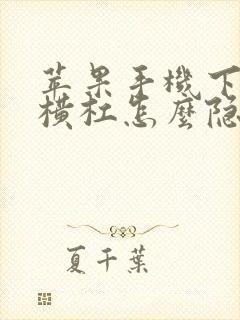 苹果手機下
橫杠怎麼隐
夏千葉